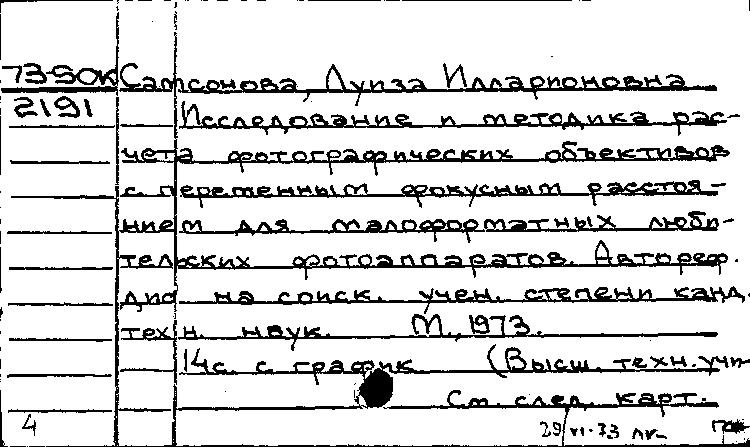 73-50К Самсонова, Луиза Илларионовна
2191 Исследование и методика рас-
чета фотографических объективов
с переменным фокусным расстоя-
нием для малоформатных люби-
тельских фотоаппаратов. Автореф.
дис на соиск. учен. степени канд.
техн. наук. М., 1973.
14с. с график (Высш. техн. учи
См. след. карт.
4 29/VI-73